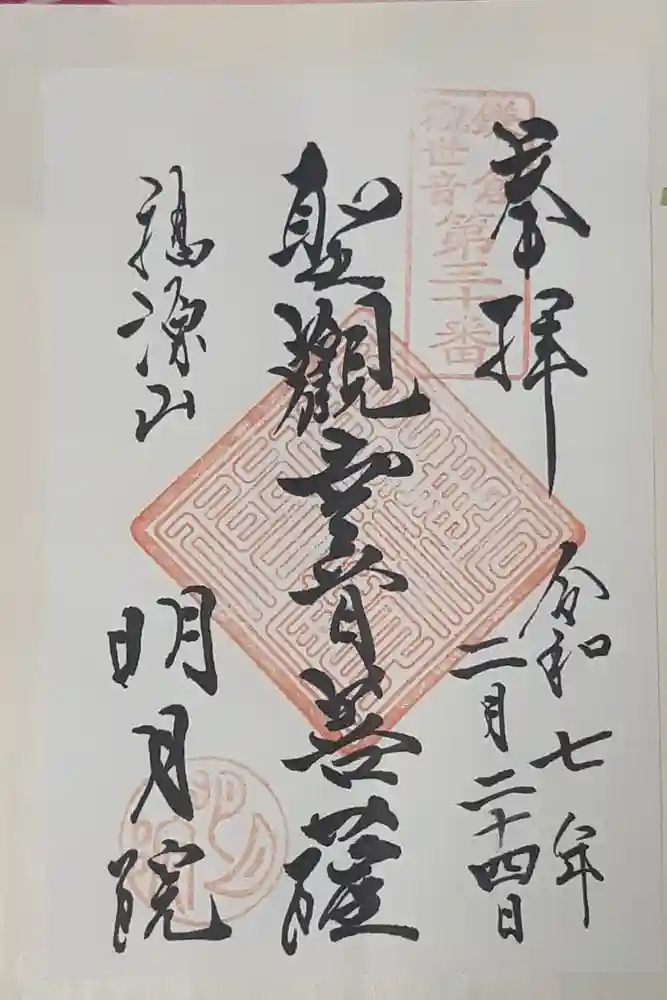 奉拝
令和七年
二月二十四日
鎌倉
観世音
第三十番
聖觀世音菩薩
福源山
明月院